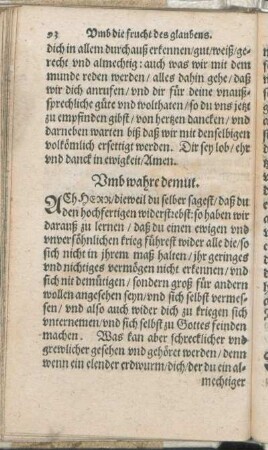 93 Vmb die frucht des glaubens.
dich in allem durchauß erkennen/gut/weiß/ge-
recht vnd almechtig: auch was wir mit dem
munde reden werden/ alles dahin gehe/ daß
wir dich anrufen/ vnd dir für deine vnauß-
sprächliche güte vnd wolthaten/ so du vns jetzt
zu empfinden gibst/ von hertzen dancken/ vnd
darneben warten biß daß wir mit denselbigen
volkömlich ersettigt werden. Dir sey lob/ ehr
vnd danck in ewigkeit/ Amen.
Vmb wahre demut.
ACh HERR/ dieweil du selber sagest/ daß du
den hochfertigen widerstrebst: so haben wir
darauß zu lernen/ daß du einen ewigen vnd
vnversöhnlichen krieg führest wider alle die/ so
sich nicht in jhrem maß halten/ jhr geringes
vnd nichtiges vermögen nicht erkennen/ vnd
sich nit demütigen/ sondern groß für andern
wollen angesehen seyn/ vnd sich selbst vermes-
sen/ vnd also auch wider dich zu kriegen sich
vnternemen/ vnd sich selbst zu Gottes feinden
machen. Was kan aber schrecklicher vnd
grewlicher gesehen vnd gehöret werden/ denn
wenn ein elender erdwurm/ dich/ der du ein al-
mechtiger